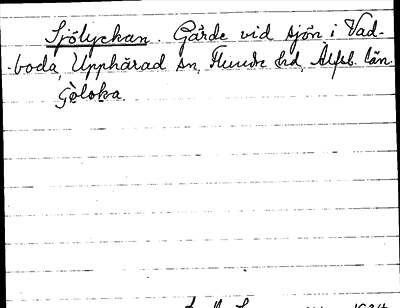 Sjölyckan. Gärde vid sjön i Vad-
boda, Upphärad sn, Flundre hd, Älfsb. län.
Gòloka.